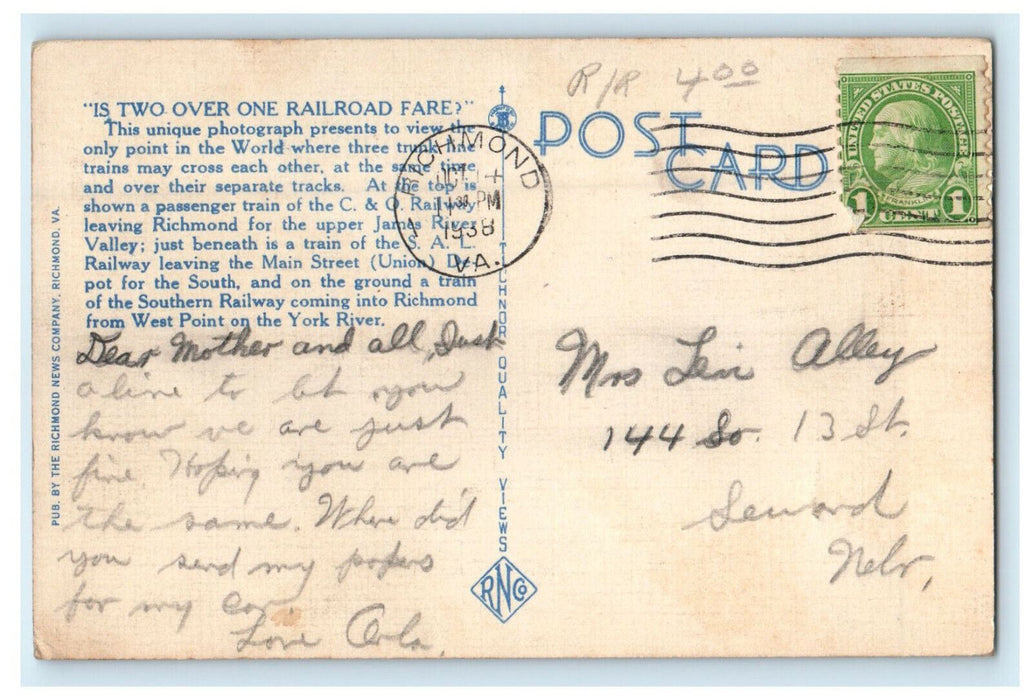 R/R 4.00
"IS TWO OVER ONE RAILROAD FARE?"
This unique photograph presents to view the
only point in the World where three trunk line
trains may cross each other, at the same time
and over their separate tracks. At the top is
shown a passenger train of the C. & O. Railway
leaving Richmond for the upper James River
Valley; just beneath is a train of the S. A. L.
Railway leaving the Main Street (Union) De-
pot for the South, and on the ground a train
of the Southern Railway coming into Richmond
from West Point on the York River.
POST
CARD
RICHMOND
1 30 PM
1938
VA.
UNITED STATES POSTAGE
FRANKLIN
1 1
PUB. BY THE RICHMOND NEWS COMPANY, RICHMOND, VA.
TECHNOR QUALITY VIEWS
RNCo
Dear Mother and all, Just
a line to let you
know we are just
fine. Hoping you are
the same. Where did
you send my papers
for my car.
Love Orla.
Mrs Levi Alley
144 So. 13 St.
Seward
Nebr.